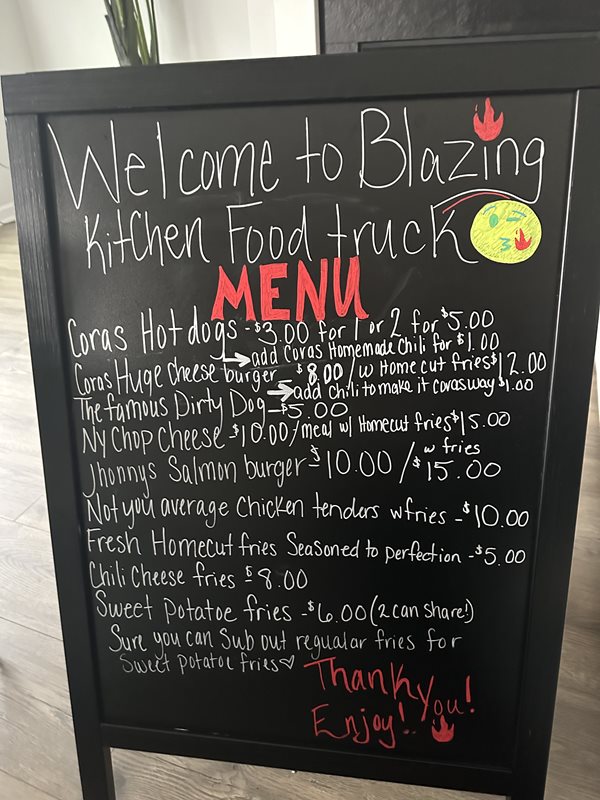 Welcome to Blazing
Kitchen Food truck
MENU
Coras Hotdogs - $3.00 for 1 or 2 for $5.00
→ add Coras Homemade Chili for $1.00
Coras Huge Cheese burger $8.00 / w Home cut fries $12.00
→ add Chili to make it corasway $1.00
The famous Dirty Dog - $5.00
NY Chop Cheese - $10.00 / meal w/ Homecut fries $15.00
Jhonnys Salmon burger - $10.00 / w fries $15.00
Not you average Chicken tenders w fries - $10.00
Fresh Homecut fries Seasoned to perfection - $5.00
Chili Cheese fries - $8.00
Sweet Potatoe fries - $6.00 (2 can share!)
Sure you can Sub out regualar fries for
Sweet potatoe fries ♡
Thank you!
Enjoy!